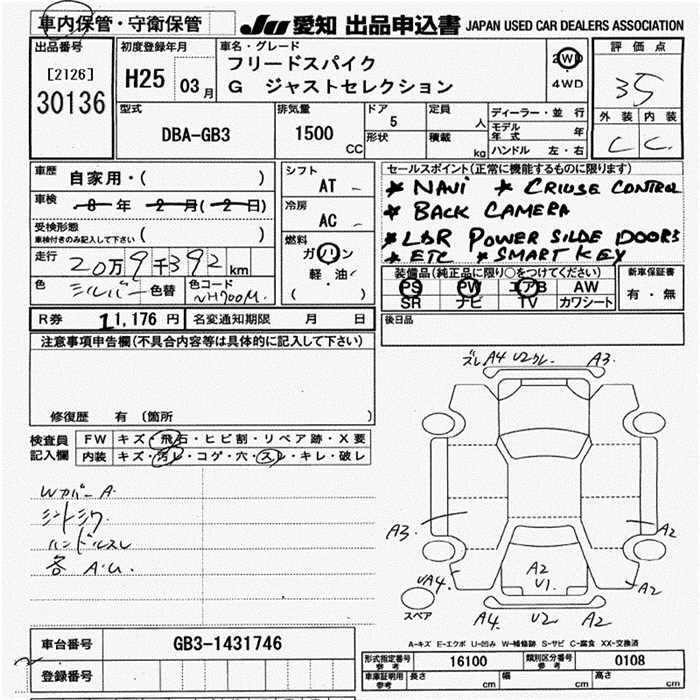 車内保管・守衛保管
JU 愛知 出品申込書 JAPAN USED CAR DEALERS ASSOCIATION
出品番号
[2126]
30136
初度登録年月
H25 03月
車名・グレード
フリードスパイク
G ジャストセレクション
2WD
4WD
評価点
35
外装 内装
C C
型式
DBA-GB3
排気量
1500 CC
ドア
5
形状
定員
人
積載
kg
ディーラー・並行
モデル年式 年
ハンドル 左・右
車歴
自家用・( )
車検
8年 2月(2日)
受検形態
車検付きのみ記入して下さい ( )
走行
20万9千392km
色
シルバー
色替
色コード
NH700M
シフト
AT
冷房
AC
燃料
ガソリン
軽・油
( )
セールスポイント(正常に機能するものに限ります)
★ NAVI ★ CRIUSE CONTROL
★ BACK CAMERA
★ L&R POWER SILDE DOORS
★ ETC ★ SMART KEY
装備品(純正品に限り○をつけてください)
PS PW エアB AW
SR ナビ TV カワシート
新車保証書
有・無
R券 11,176円 名変通知期限 月 日
後日品
注意事項申告欄(不具合内容等は具体的に記入して下さい)
修復歴 有 〔箇所 )
検査員
記入欄
FW キズ・飛石・ヒビ割・リペア跡・X要
内装 キズ・汚レ・コゲ・穴・スレ・キレ・破レ
Wカバー A
シートシワ
ハンドルスレ
各 A.U.
ズレ A4 U2クレ
A3
A3
A2
A2
U1
UA4
スペア
A2
A4 U2 A2
A-キズ E-エクボ U-凹み W-補修跡 S-サビ C-腐食 XX-交換済
車台番号 GB3-1431746
登録番号
形式指定番号
参考
16100
類別区分番号
参考
0108
車庫証明用
参考
長さ cm 幅 cm 高さ cm